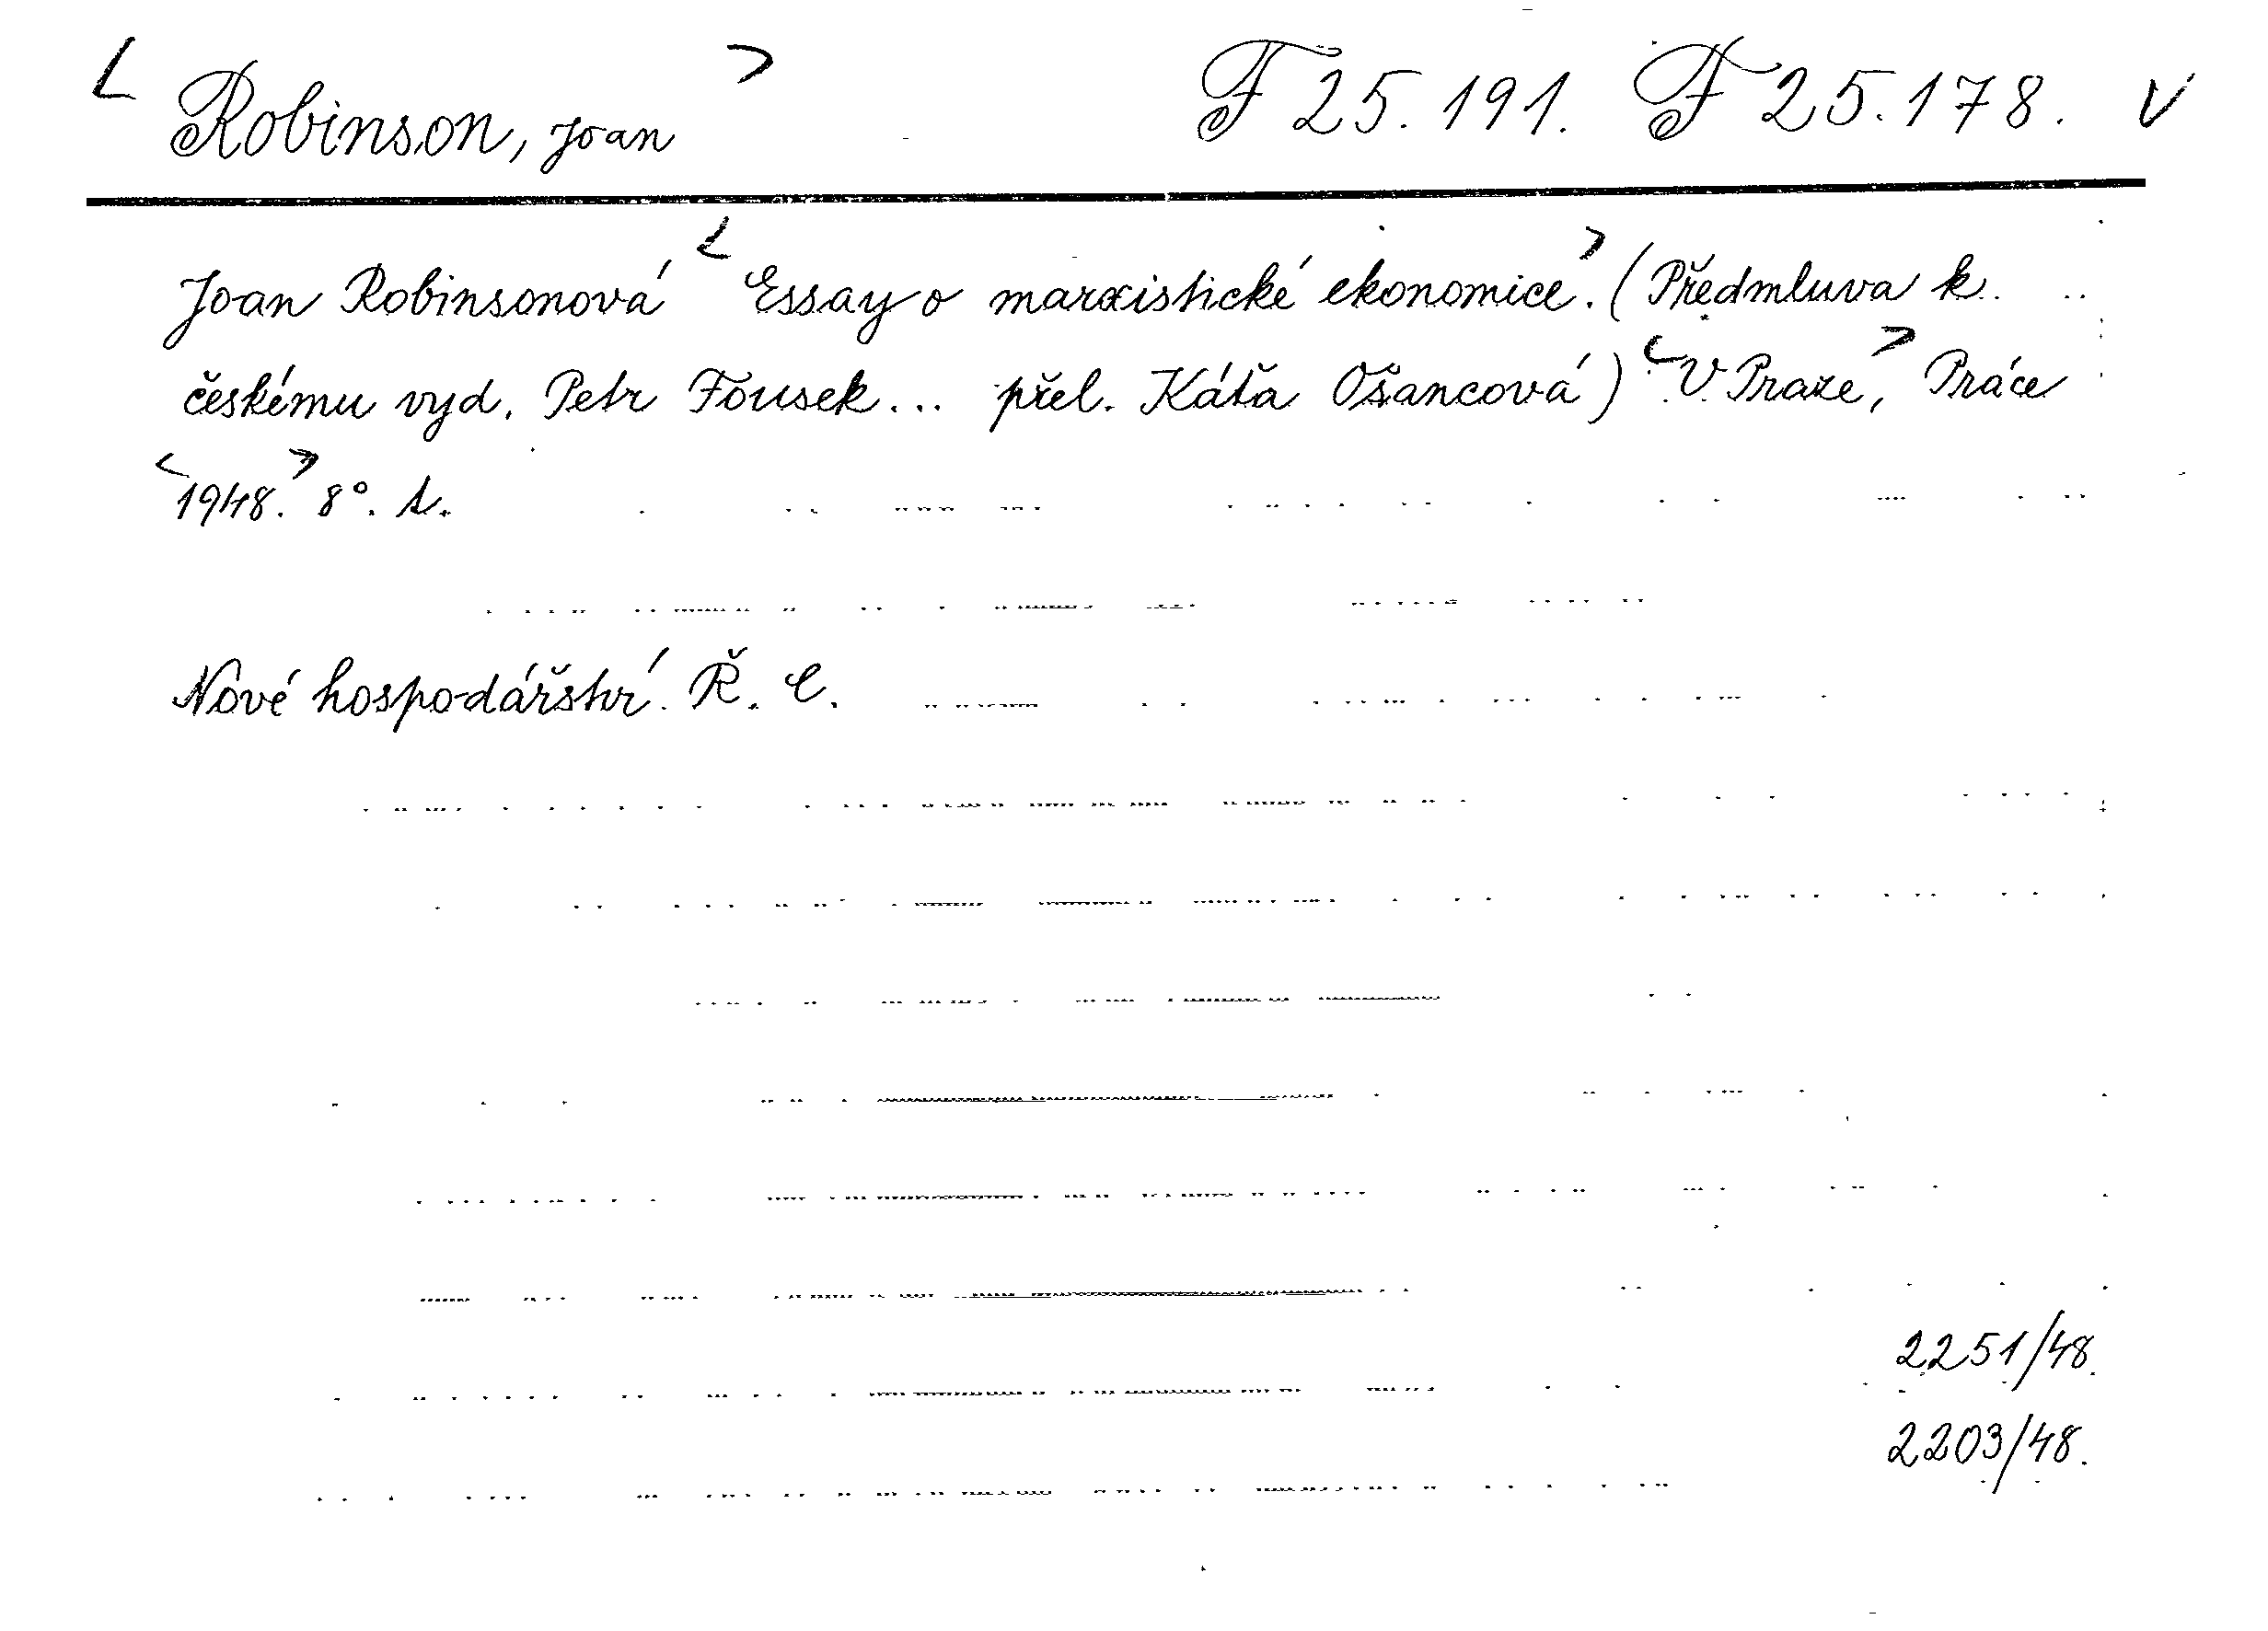 < Robinson, Joan > F 25.191. F 25.178. v
Joan Robinsonová < Essay o marxistické ekonomice >. (Předmluva k
českému vyd. Petr Fousek... přel. Káťa Ošancová) < V Praze, > Práce
< 1948. > 8°.
Nové hospodářství. Ř. C.
2251/48.
2203/48.